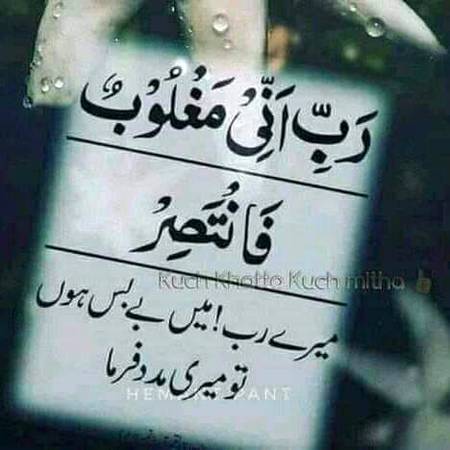 رَبِّ اَنِّیْ مَغْلُوْبٌ
فَانْتَصِرْ
Kuch Khatta Kuch mitha 👍
میرے رب! میں بے بس ہوں
تو میری مدد فرما
HEMANT PANT